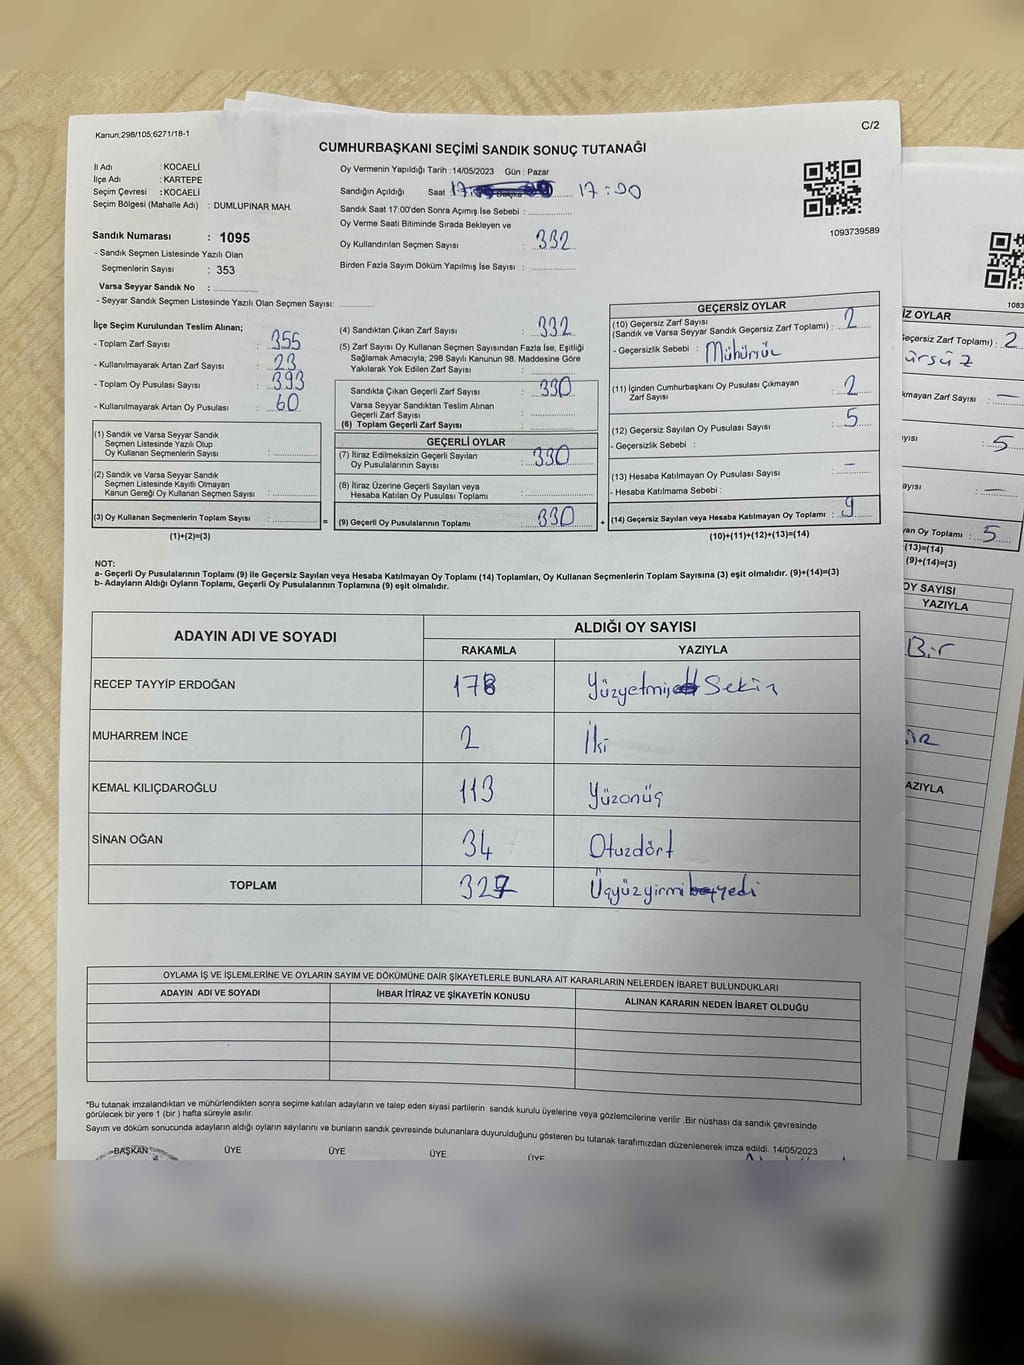 Kanun;298/105;6271/18-1
C/2
CUMHURBAŞKANI SEÇİMİ SANDIK SONUÇ TUTANAĞI
İl Adı : KOCAELİ
İlçe Adı : KARTEPE
Seçim Çevresi : KOCAELİ
Seçim Bölgesi (Mahalle Adı) : DUMLUPINAR MAH.
Oy Vermenin Yapıldığı Tarih : 14/05/2023 Gün : Pazar
Sandığın Açıldığı Saat 17:00
Sandık Saat 17:00'den Sonra Açımış İse Sebebi :
Oy Verme Saati Bitiminde Sırada Bekleyen ve
Oy Kullandırılan Seçmen Sayısı : 332
Birden Fazla Sayım Döküm Yapılmış İse Sayısı :
1093739589
Sandık Numarası : 1095
- Sandık Seçmen Listesinde Yazılı Olan
Seçmenlerin Sayısı : 353
Varsa Seyyar Sandık No :
- Seyyar Sandık Seçmen Listesinde Yazılı Olan Seçmen Sayısı:
İlçe Seçim Kurulundan Teslim Alınan;
- Toplam Zarf Sayısı : 355
- Kullanılmayarak Artan Zarf Sayısı : 23
- Toplam Oy Pusulası Sayısı : 393
- Kullanılmayarak Artan Oy Pusulası : 60
(1) Sandık ve Varsa Seyyar Sandık
Seçmen Listesinde Yazılı Olup
Oy Kullanan Seçmenlerin Sayısı :
(2) Sandık ve Varsa Seyyar Sandık
Seçmen Listesinde Kayıtlı Olmayan
Kanun Gereği Oy Kullanan Seçmen Sayısı :
(3) Oy Kullanan Seçmenlerin Toplam Sayısı :
(1)+(2)=(3)
(4) Sandıktan Çıkan Zarf Sayısı : 332
(5) Zarf Sayısı Oy Kullanan Seçmen Sayısından Fazla İse, Eşitliği
Sağlamak Amacıyla; 298 Sayılı Kanunun 98. Maddesine Göre
Yakılarak Yok Edilen Zarf Sayısı :
Sandıkta Çıkan Geçerli Zarf Sayısı : 330
Varsa Seyyar Sandıktan Teslim Alınan
Geçerli Zarf Sayısı :
(6) Toplam Geçerli Zarf Sayısı :
GEÇERLİ OYLAR
(7) İtiraz Edilmeksizin Geçerli Sayılan
Oy Pusulalarının Sayısı : 330
(8) İtiraz Üzerine Geçerli Sayılan veya
Hesaba Katılan Oy Pusulası Toplamı :
= (9) Geçerli Oy Pusulalarının Toplamı : 330
GEÇERSİZ OYLAR
(10) Geçersiz Zarf Sayısı
(Sandık ve Varsa Seyyar Sandık Geçersiz Zarf Toplamı) : 2
- Geçersizlik Sebebi :
(11) İçinden Cumhurbaşkanı Oy Pusulası Çıkmayan
Zarf Sayısı : 2
(12) Geçersiz Sayılan Oy Pusulası Sayısı : 5
- Geçersizlik Sebebi :
(13) Hesaba Katılmayan Oy Pusulası Sayısı : –
- Hesaba Katılmama Sebebi :
+ (14) Geçersiz Sayılan veya Hesaba Katılmayan Oy Toplamı : 9
(10)+(11)+(12)+(13)=(14)
NOT:
a- Geçerli Oy Pusulalarının Toplamı (9) ile Geçersiz Sayılan veya Hesaba Katılmayan Oy Toplamı (14) Toplamları, Oy Kullanan Seçmenlerin Toplam Sayısına (3) eşit olmalıdır. (9)+(14)=(3)
b- Adayların Aldığı Oyların Toplamı, Geçerli Oy Pusulalarının Toplamına (9) eşit olmalıdır.
ADAYIN ADI VE SOYADI
ALDIĞI OY SAYISI
RAKAMLA YAZIYLA
RECEP TAYYİP ERDOĞAN 178 Yüzyetmiş Sekiz
MUHARREM İNCE 2 İki
KEMAL KILIÇDAROĞLU 113 Yüzonüç
SİNAN OĞAN 34 Otuzdört
TOPLAM 327 Üçyüzyirmi yedi
OYLAMA İŞ VE İŞLEMLERİNE VE OYLARIN SAYIM VE DÖKÜMÜNE DAİR ŞİKAYETLERLE BUNLARA AİT KARARLARIN NELERDEN İBARET BULUNDUKLARI
ADAYIN ADI VE SOYADI İHBAR İTİRAZ VE ŞİKAYETİN KONUSU ALINAN KARARIN NEDEN İBARET OLDUĞU
*Bu tutanak imzalandıktan ve mühürlendikten sonra seçime katılan adayların ve talep eden siyasi partilerin sandık kurulu üyelerine veya gözlemcilerine verilir .Bir nüshası da sandık çevresinde
görülecek bir yere 1 (bir ) hafta süreyle asılır.
Sayım ve döküm sonucunda adayların aldığı oyların sayılarını ve bunların sandık çevresinde bulunanlara duyurulduğunu gösteren bu tutanak tarafımızdan düzenlenerek imza edildi. 14/05/2023
BAŞKAN ÜYE ÜYE ÜYE ÜYE
1083
İZ OYLAR
eçersiz Zarf Toplamı) : 2
ürsüz
kmayan Zarf Sayısı : –
yısı : 5
ayısı : –
yan Oy Toplamı : 5
(13)=(14)
(9)+(14)=(3)
OY SAYISI
YAZIYLA
Bir
AZIYLA